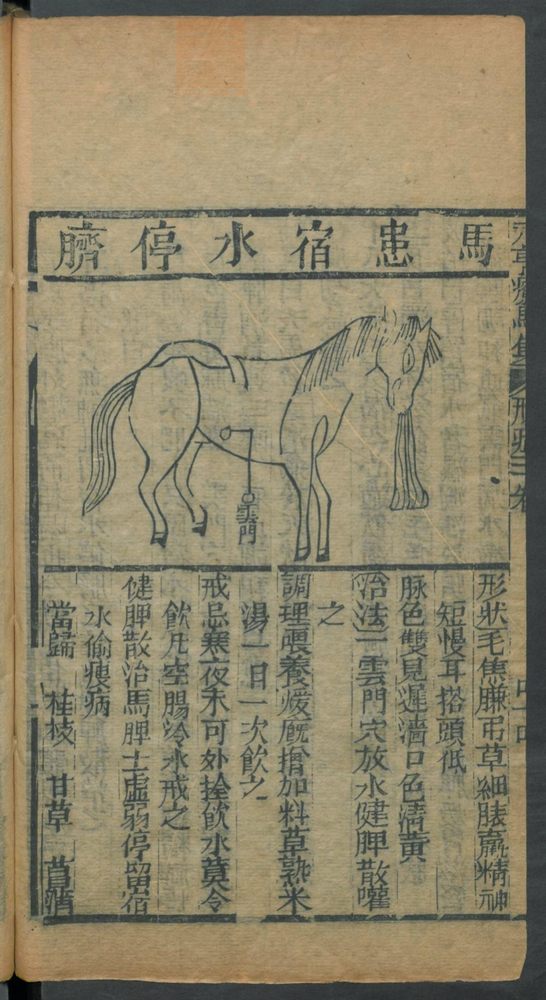 馬患宿水停臍
雲門
形狀毛焦膁吊草細臕羸精神
短慢耳搭頭低
脉色雙見遲濇口色清黃
治法一雲門穴放水健脾散灌
之
調理喂養煖厩增加料草熟米
湯一日一次飲之
戒忌寒夜不可外拴飲水莫令
飲凡空腸冷水戒之
健脾散治馬脾土虛弱停留宿
水偷瘦病
當歸 桂枝 甘草 菖蒲